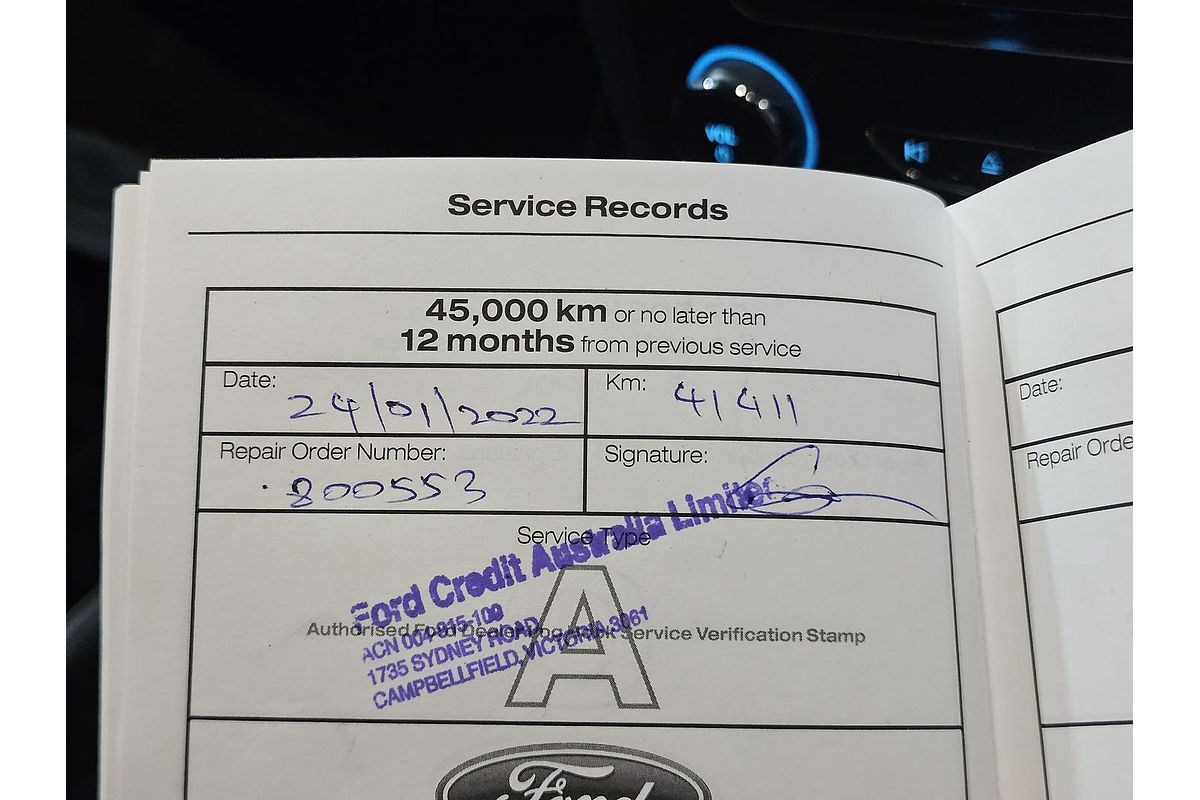 VOL
Service Records
45,000 km or no later than
12 months from previous service
Date:
24/01/2022
Km:
41411
Repair Order Number:
800553
Signature:
Service Type
A
Authorised Ford Dealer Log Book Service Verification Stamp
Ford Credit Australia Limited
ACN 004-915-100
1735 SYDNEY ROAD
CAMPBELLFIELD, VICTORIA, 3061
Ford
Date:
Repair Orde